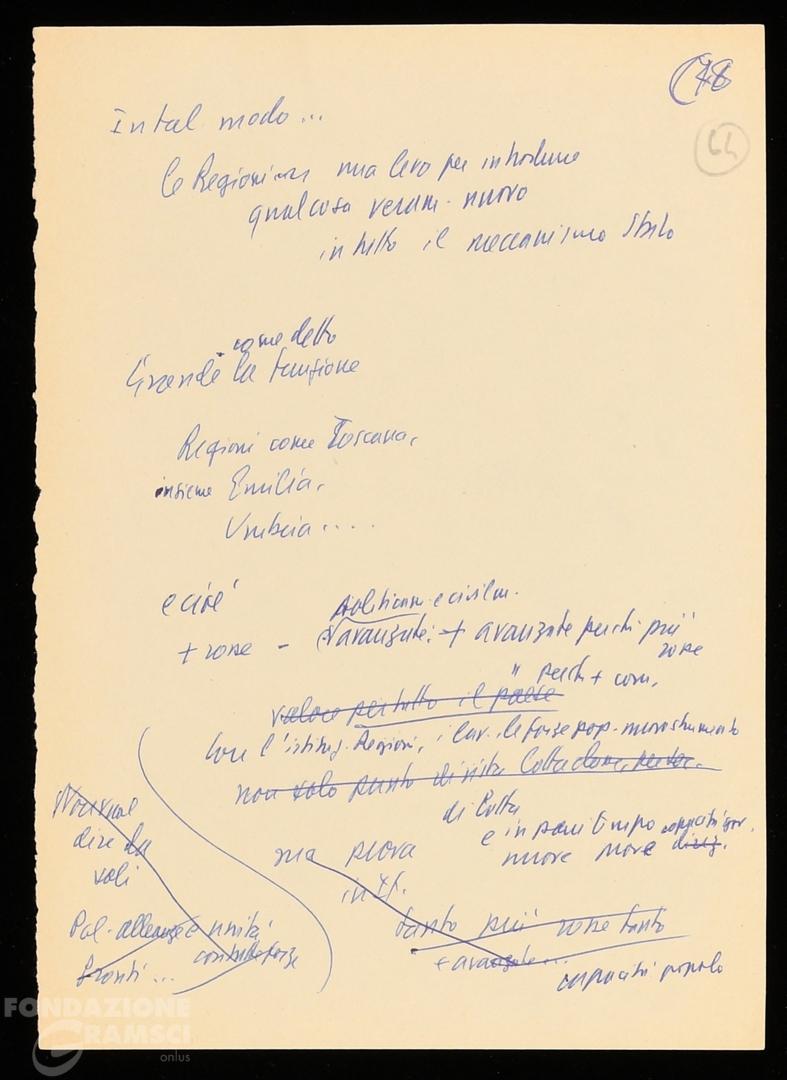 (78
64
In tal modo...
le Regioni una leva per introdurre
qualcosa veram. nuovo
in tutto il meccanismo Stato
come detto
Grande la funzione
Regioni come Toscana,
insieme Emilia,
Umbria....
e cioè
politicam. e civilm.
+ rosse - avanzate: + avanzate perché più
rosse
" perché + com.
valore per tutto il paese
Con l'istituz. Regioni, i lav. le forze pop. nuovo strumento
non solo punto di vista
di lotta
e in pari tempo capacità gov.
nuove prove
Non vuol
dire da
soli
ma prova
in It.
tanto più rosse tanto
+ avanzate...
capacità popolo
Pol. alleanze e unità
con tutte forze
fronti...
FONDAZIONE
GRAMSCI
onlus